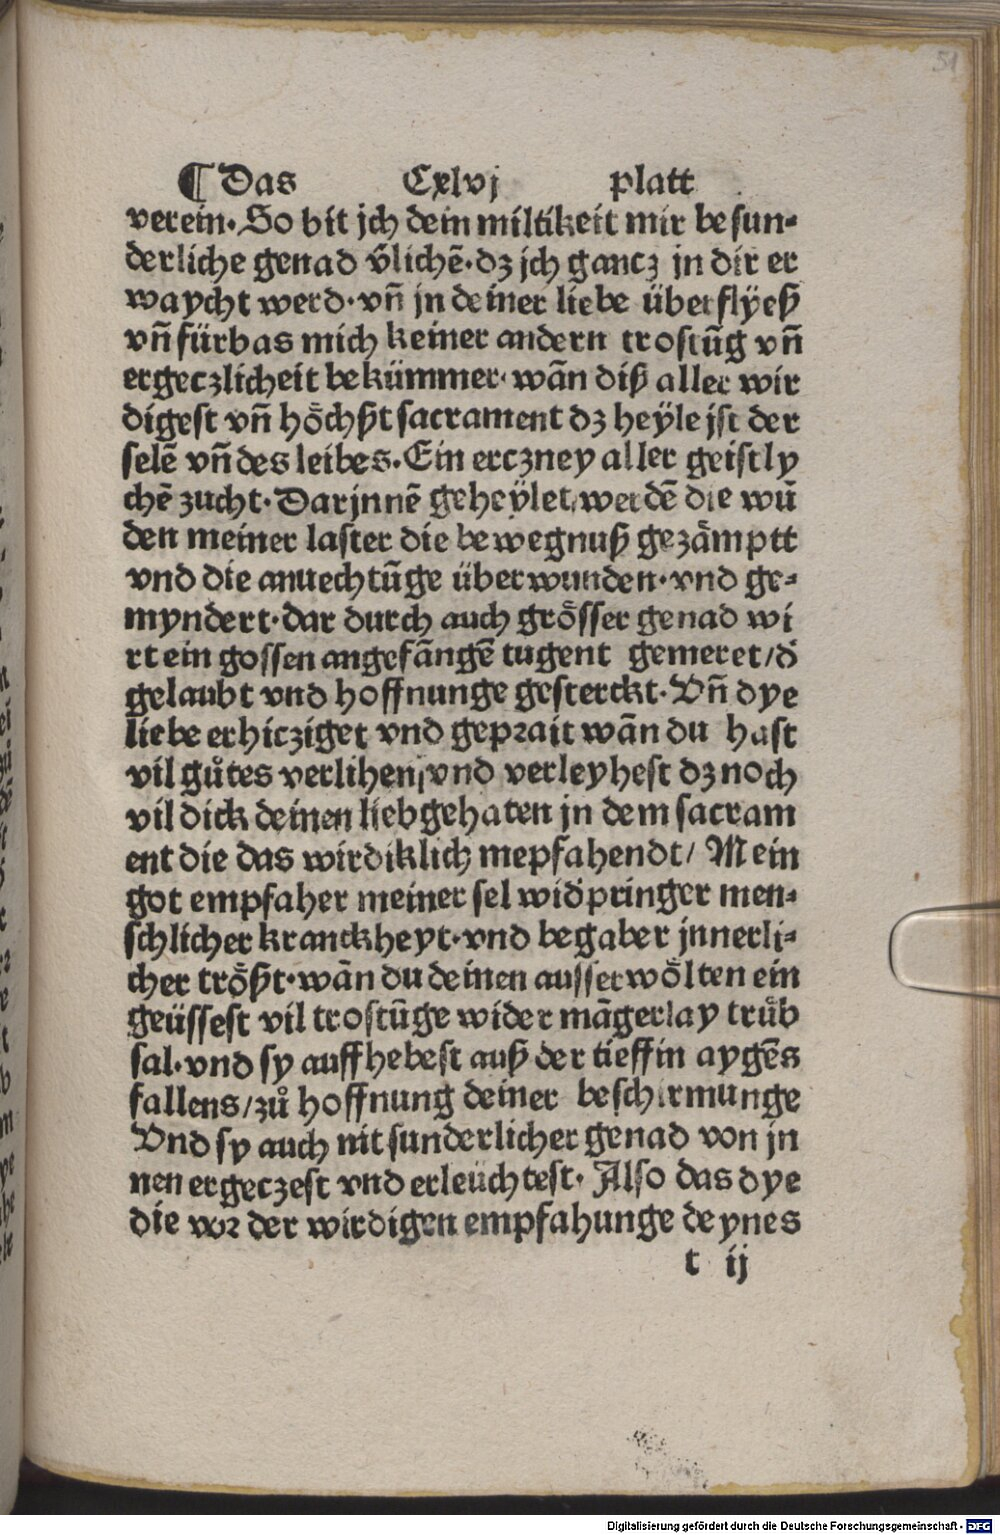 51
¶ Das Cxlvj platt
verein. So bit jch dein miltikeit mir besun-
derliche genad v̄lichē. dz jch gancz jn dir er
waycht werd. vn̄ jn deiner liebe überflÿeß
vn̄ fürbas mich keiner andern trostūg vn̄
ergeczlicheit bekümmer. wān diß aller wir
digest vn̄ hoͤchßt sacrament dz heÿle jst der
selē vn̄ des leibes. Ein erczney aller geistly
chē zucht. Darjnnē geheÿlet werdē die wū
den meiner laster die bewegnuß gezāmptt
vnd die anuechtūge überwunden. vnd ge-
myndert. dar durch auch groͤsser genad wi
rt ein gossen angefāngē tugent gemeret/ d̓
gelaubt vnd hoffnunge gesterckt. Vn̄ dye
liebe erhicziget vnd geprait wān du hast
vil guͦtes verlihen/ vnd verleyhest dz noch
vil dick deinen liebgehaten jn dem sacram
ent die das wirdiklich mepfahendt/ Mein
got empfaher meiner sel wid̓pringer men-
schlicher kranckheyt. vnd begaber jnnerli-
cher troͤßt. wān du deinen ausserwoͤlten ein
geüssest vil trostūge wider māgerlay truͤb
sal. vnd sy auffhebest auß der tieffin aygēs
fallens/ zuͦ hoffnung deiner beschirmunge
Vnd sy auch nit sunderlicher genad von jn
nen ergeczest vnd erleüchtest. Also das dye
die vor der wirdigen empfahunge deynes
t ij
Digitalisierung gefördert durch die Deutsche Forschungsgemeinschaft - DFG